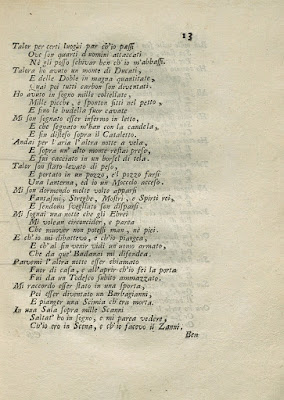 13
Talor per certi luoghi par ch'io passi
Ove son quarti d'uomini attaccati
Nè gli posso schivar ben ch'io m'abbassi.
Talora ho avuto un monte di Ducati,
E delle Doble in magna quantitate,
E quai poi tutti carbon son diventati.
Ho avuto in sogno mille coltellate,
Mille picche, e sponton fitti nel petto,
E fino le budella fuor cavate
Mi son sognato esser infermo in letto,
E che segnato m'han con la candela,
E fui disteso sopra il Cataletto.
Andai per l'aria l'altra notte a vela,
E sopra un'alto monte restai preso,
E fui cacciato in un borsel di tela.
Talor son stato levato di peso,
E portato in un pozzo, e'l pozzo farsi
Una lanterna, ed io un Moccolo acceso.
Mi son dormendo molte volte apparsi
Fantasmi, Streghe, Mostri, e Spirti rei,
E sendomi svegliato son disparsi.
Mi sognai una notte che gli Ebrei
Mi volean circoncider, e parea
Che muover non potessi man, nè piei.
E ch'io mi dibattevo, e ch'io piangea;
E ch'al fin venir vidi un'uomo armato,
Che da que' Badanai mi difendea.
Parvemi l'altra notte esser chiamato
Fuor di casa, e all'aprir ch'io fei la porta
Fui da un Tedesco subito ammazzato.
Mi raccordo esser stato in una sporta,
Poi esser diventato un Barbagianni,
E pianger una Scimia ch'era morta.
In una Sala sopra mille Scanni
Saltat' ho in sogno, e mi parea vedere,
Ch'io ero in Scena, e ch'io facevo il Zanni.
Ben